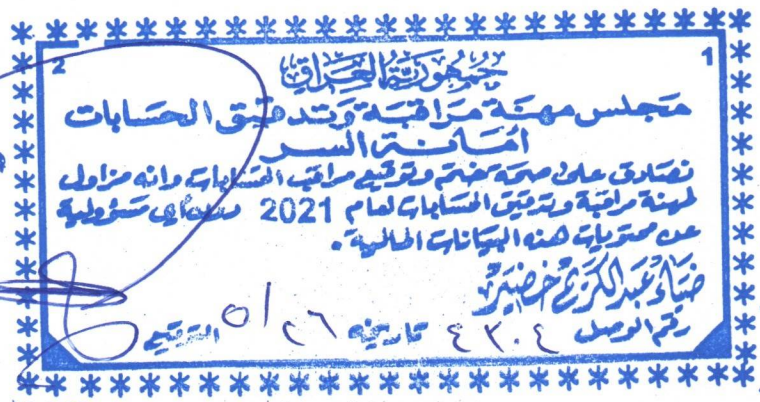 1
2
جمهورية العراق
مجلس مهنة مراقبة وتدقيق الحسابات
أمانة السر
نصادق على صحة ختم وتوقيع مراقب الحسابات وانه مزاول
لمهنة مراقبة وتدقيق الحسابات لعام 2021 دون أي مسؤولية
عن محتويات هذه البيانات المالية.
ضياء عبد الكريم خضير
رقم الوصل ٤٣٠٤ تاريخه ٢٦/٥ التوقيع